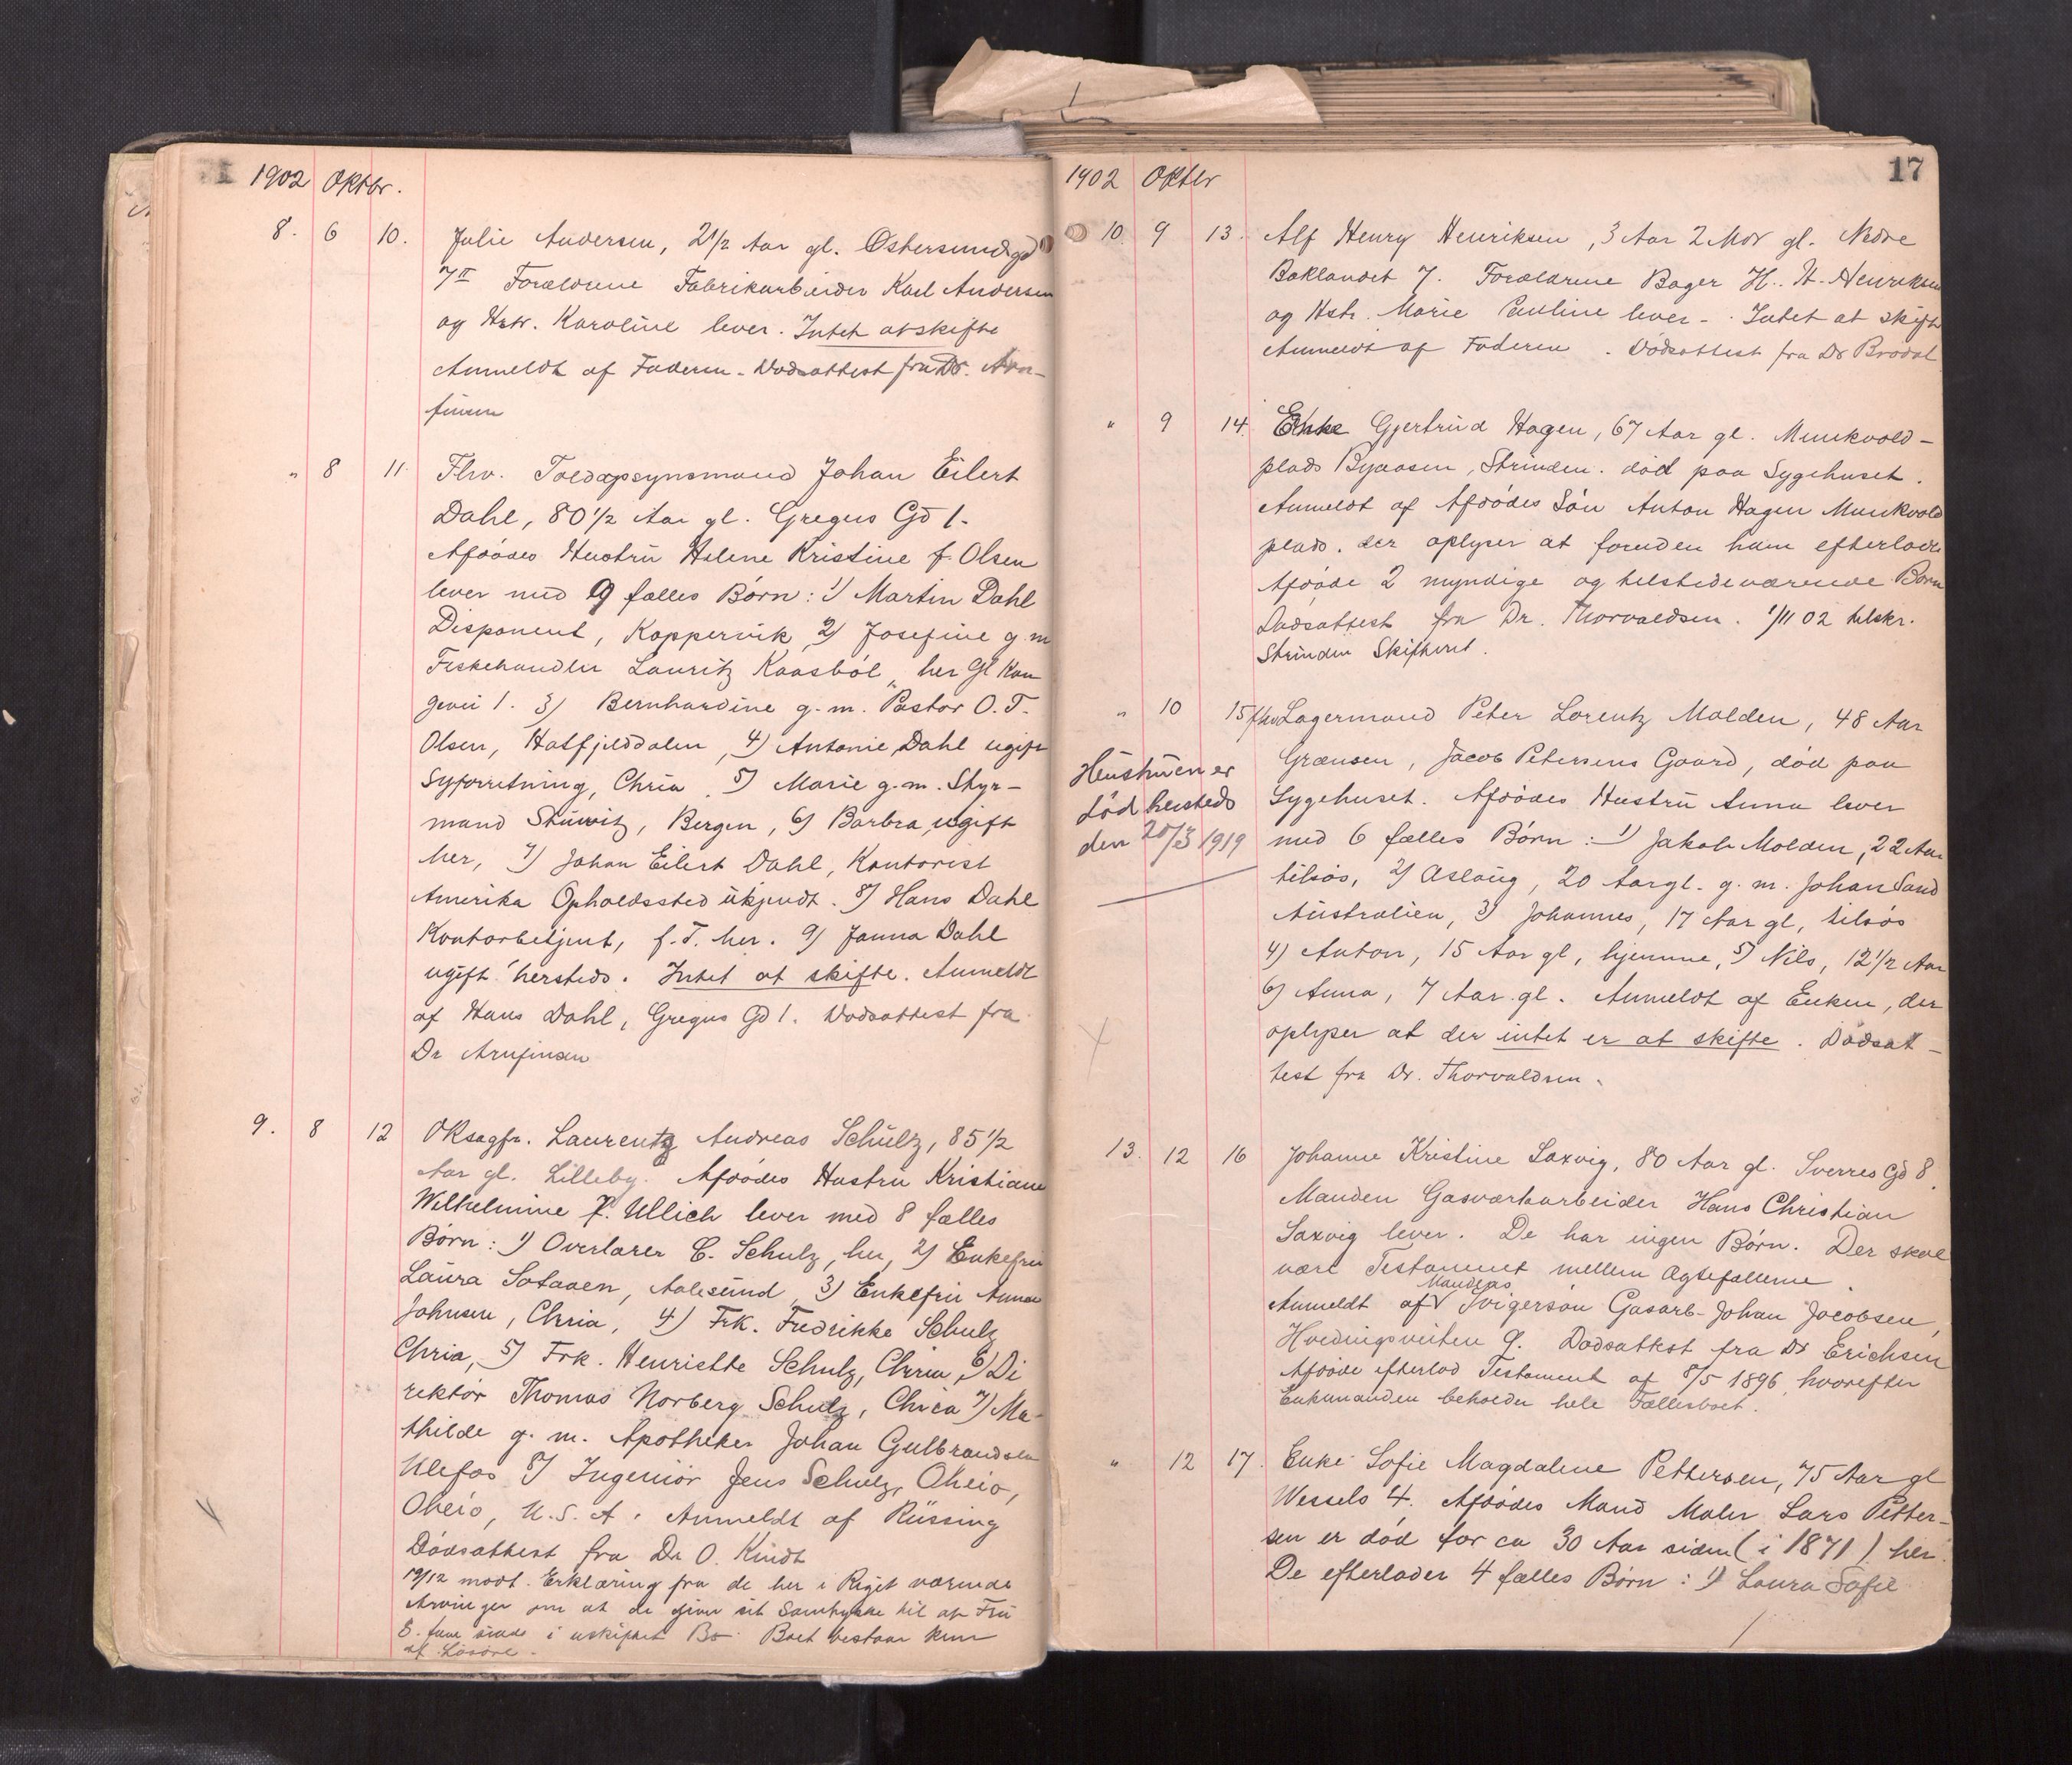 1902 Oktbr.
8. 6 10. Julie Andersen, 2 1/2 Aar gl. Østersundsgd
7 II Forældrene Fabrikarbeider Karl Andersen
og Hstr. Karoline lever. Intet at skifte
Anmeldt af Faderen. Dødsattest fra Dr. Arn-
finsen
" 8 11. Fhv. Toldopsynsmand Johan Eilert
Dahl, 80 1/2 Aar gl. Gregus Gd 1.
Afdødes Hustru Helene Kristine f. Olsen
lever med 9 fælles Børn: 1) Martin Dahl
Disponent, Koppervik, 2) Josefine g.m
Fiskehandler Lauritz Kaasbøl, her Gl Kon
gevei 1. 3) Bernhardine g.m. Pastor O.T.
Olsen, Hatfjelddalen, 4) Antonie Dahl ugift
Syforretning, Chria. 5) Marie g.m. Styr-
mand Stüwitz, Bergen, 6) Barbra, ugift
her, 7) Johan Eilert Dahl, Kontorist
Amerika Opholdssted ukjendt. 8) Hans Dahl
Kontorbetjent, f.T. her. 9) Janna Dahl
ugift hersteds. Intet at skifte. Anmeldt
af Hans Dahl, Gregus Gd 1. Dødsattest fra
Dr Arnfinsen
9. 8 12 OKsagfr. Laurentz Andreas Schulz, 85 1/2
Aar gl. Lilleby. Afdødes Hustru Kristiane
Wilhelmine f. Ullich lever med 8 fælles
Børn: 1) Overlærer C. Schulz, her, 2) Enkefru
Laura Sataaen, Aalesund, 3) Enkefru Anna
Johnsen, Chria, 4) Frk. Fredrikke Schulz
Chria, 5) Frk. Henriette Schulz, Chria, 6) Di
rektør Thomas Norberg Schulz, Chria 7) Ma-
thilde g.m. Apotheker Johan Gulbrandsen
Ulefos 8) Ingeniør Jens Schulz, Oheio,
Oheio, U.S.A. Anmeldt af Rüssing
Dødsattest fra Dr O. Kindt
19/12 modt. Erklæring fra de her i Riget værende
Arvinger om at de giver sit Samtykke til at Fru
S. faar sidde i uskiftet Bo. Boet bestaar kun
af Løsøre.
1902 Oktbr 17
10. 9 13. Alf Henry Henriksen, 3 Aar 2 Mdr gl. Nedre
Baklandet 7. Forældrene Bager H. H. Henriksen
og Hstr. Marie Pauline lever. Intet at skifte
Anmeldt af Faderen. Dødsattest fra Dr Brodal
" 9 14. Enke Gjertrud Hagen, 67 Aar gl. Munkvold-
plads Byaasen, Strinden. død paa Sygehuset.
Anmeldt af Afdødes Søn Anton Hagen Munkvold
plads. der oplyser at foruden ham efterlader
Afdøde 2 myndige og tilstedeværende Børn
Dødsattest fra Dr. Thorvaldsen. 1/11 02 tilskr.
Strinden Skifteret.
" 10 15 fhv Lagermand Peter Lorentz Molden, 48 Aar
Grænsen, Jacob Petersens Gaard, død paa
Sygehuset. Afdødes Hustru Anna lever
med 6 fælles Børn: 1) Jakob Molden, 22 Aar
tilsøs, 2) Aslaug, 20 Aar gl. g.m. Johan Sand
Australien, 3) Johannes, 17 Aar gl, tilsøs
4) Anton, 15 Aar gl, hjemme, 5) Nils, 12 1/2 Aar
6) Anna, 7 Aar gl. Anmeldt af Enken, der
oplyser at der intet er at skifte. Dødsat-
test fra Dr. Thorvaldsen.
Hustruen er
død hersteds
den 25/3 1919
13. 12 16 Johanne Kristine Saxvig, 80 Aar gl. Sverres Gd 8.
Manden Gasværkarbeider Hans Christian
Saxvig lever. De har ingen Børn. Der skal
være Testament mellem Ægtefællerne.
Mandens
Anmeldt af V Svigersøn Gasarb. Johan Jacobsen,
Hvedingsveiten 9. Dødsattest fra Dr Erichsen
Afdøde efterlod Testament af 8/5 1896, hvorefter
Enkemanden beholder hele Fællesboet.
" 12 17. Enke Sofie Magdalene Pettersen, 75 Aar gl
Wessels 4. Afdødes Mand Maler Lars Petter-
sen er død for ca 30 Aar siden (i 1871) her.
De efterlader 4 fælles Børn: 1) Laura Sofie